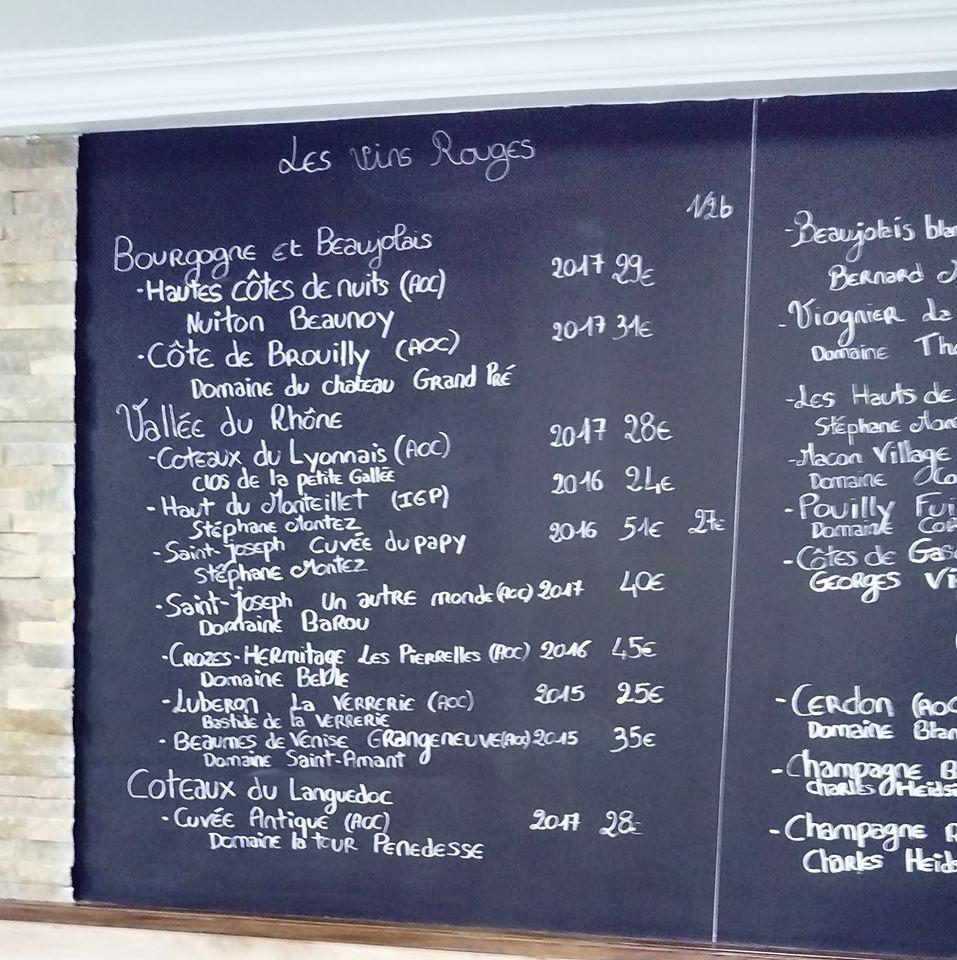 Les vins Rouges
1/2b
Bourgogne et Beaujolais
-Hautes côtes de nuits (AOC) 2017 29€
Nuiton Beaunoy
-Côte de Brouilly (AOC) 2017 31€
Domaine du chateau Grand Pré
Vallée du Rhône
-Coteaux du Lyonnais (AOC) 2017 28€
clos de la petite Gallée
-Haut du Monteillet (IGP) 2016 24€
Stéphane Montez
-Saint-Joseph Cuvée du papy 2016 51€ 27€
Stéphane Montez
-Saint-Joseph Un autre monde (AOC) 2017 40€
Domaine Barou
-Crozes-Hermitage Les Pierrelles (AOC) 2016 45€
Domaine Belle
-Luberon La Verrerie (AOC) 2015 25€
Bastide de la Verrerie
-Beaumes de Venise Grangeneuve (AOC) 2015 35€
Domaine Saint-Amant
Coteaux du Languedoc
-Cuvée Antique (AOC) 2017 28€
Domaine la tour Penedesse
-Beaujolais
Bernard
-Viognier de
Domaine
-Les Hauts de
Stéphane
-Macon Village
Domaine
-Pouilly
Domaine
-Côtes de
Georges
-Cerdon
Domaine
-Champagne
Charles
-Champagne
Charles